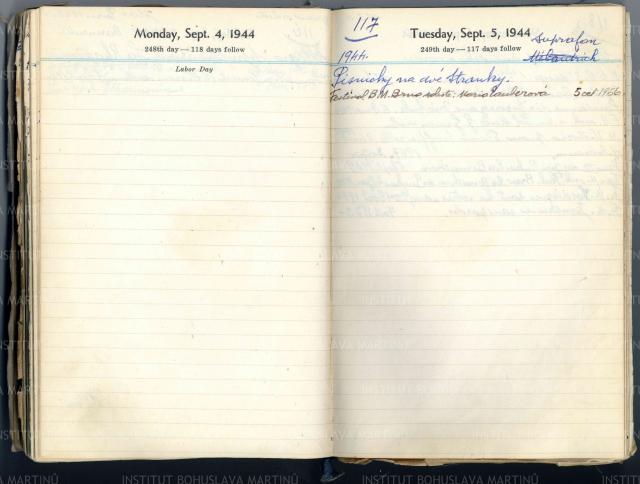 Monday, Sept. 4, 1944
248th day—118 days follow
Labor Day
117
Tuesday, Sept. 5, 1944
249th day—117 days follow
Suprafon
1944.
Písničky na dvě Stránky.
Festival B.M. Brno Marie 5 oct 1956
INSTITUT BOHUSLAVA MARTINŮ